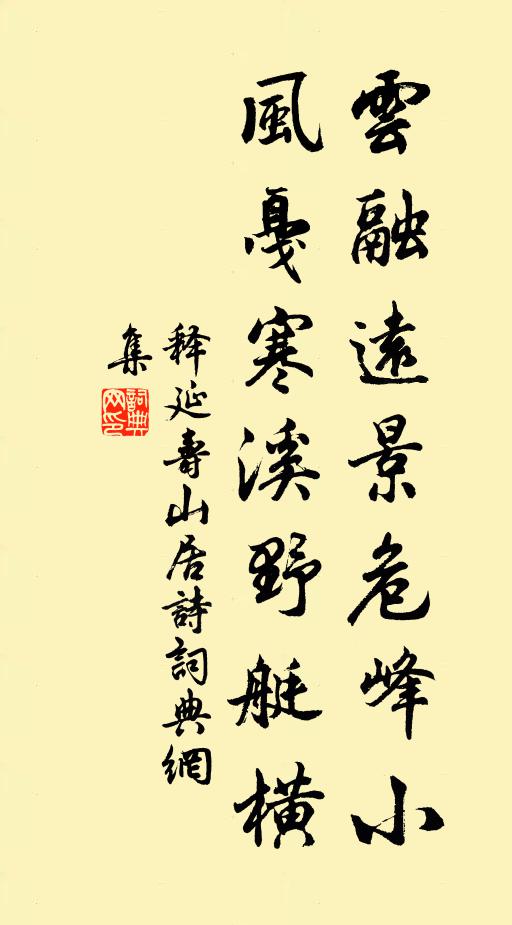 雲融遠景危峰小
風戛寒溪野艇橫
释延壽山居詩詞典網
集
詞典网印